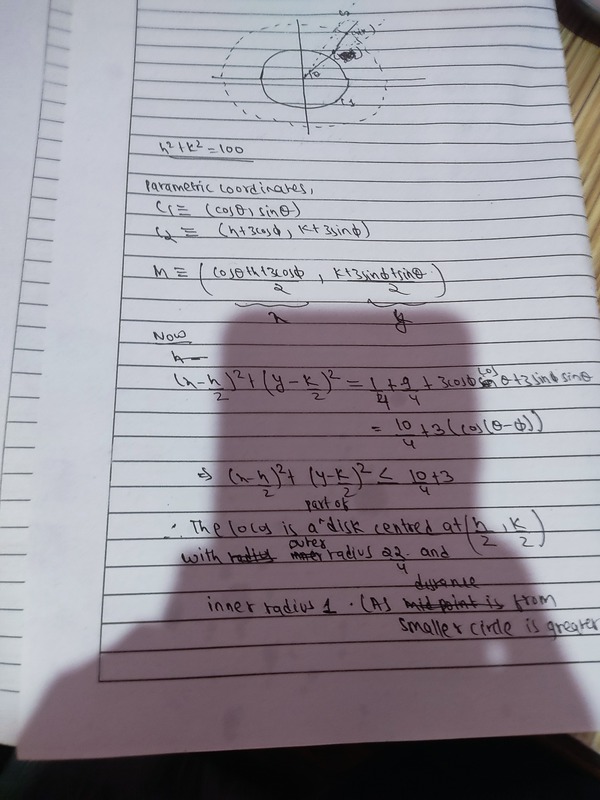 h²+k²=100
Parametric coordinates,
C₁ ≡ (cosθ, sinθ)
C₂ ≡ (h+3cosϕ, k+3sinϕ)
M ≡ (cosθ+h+3cosϕ/2, k+3sinϕ+sinθ/2)
x y
Now
h-
(x-h/2)²+(y-k/2)² = 1/4+9/4+3cosϕcosθ+3sinϕsinθ
= 10/4+3(cos(θ-ϕ))
⇒ (x-h/2)²+(y-k/2)² ≤ 10/4+3
part of
∴ The locos is a disk centred at (h/2, k/2)
with outer radius 22/4 and
inner radius 1. (As distance from
smaller circle is greater